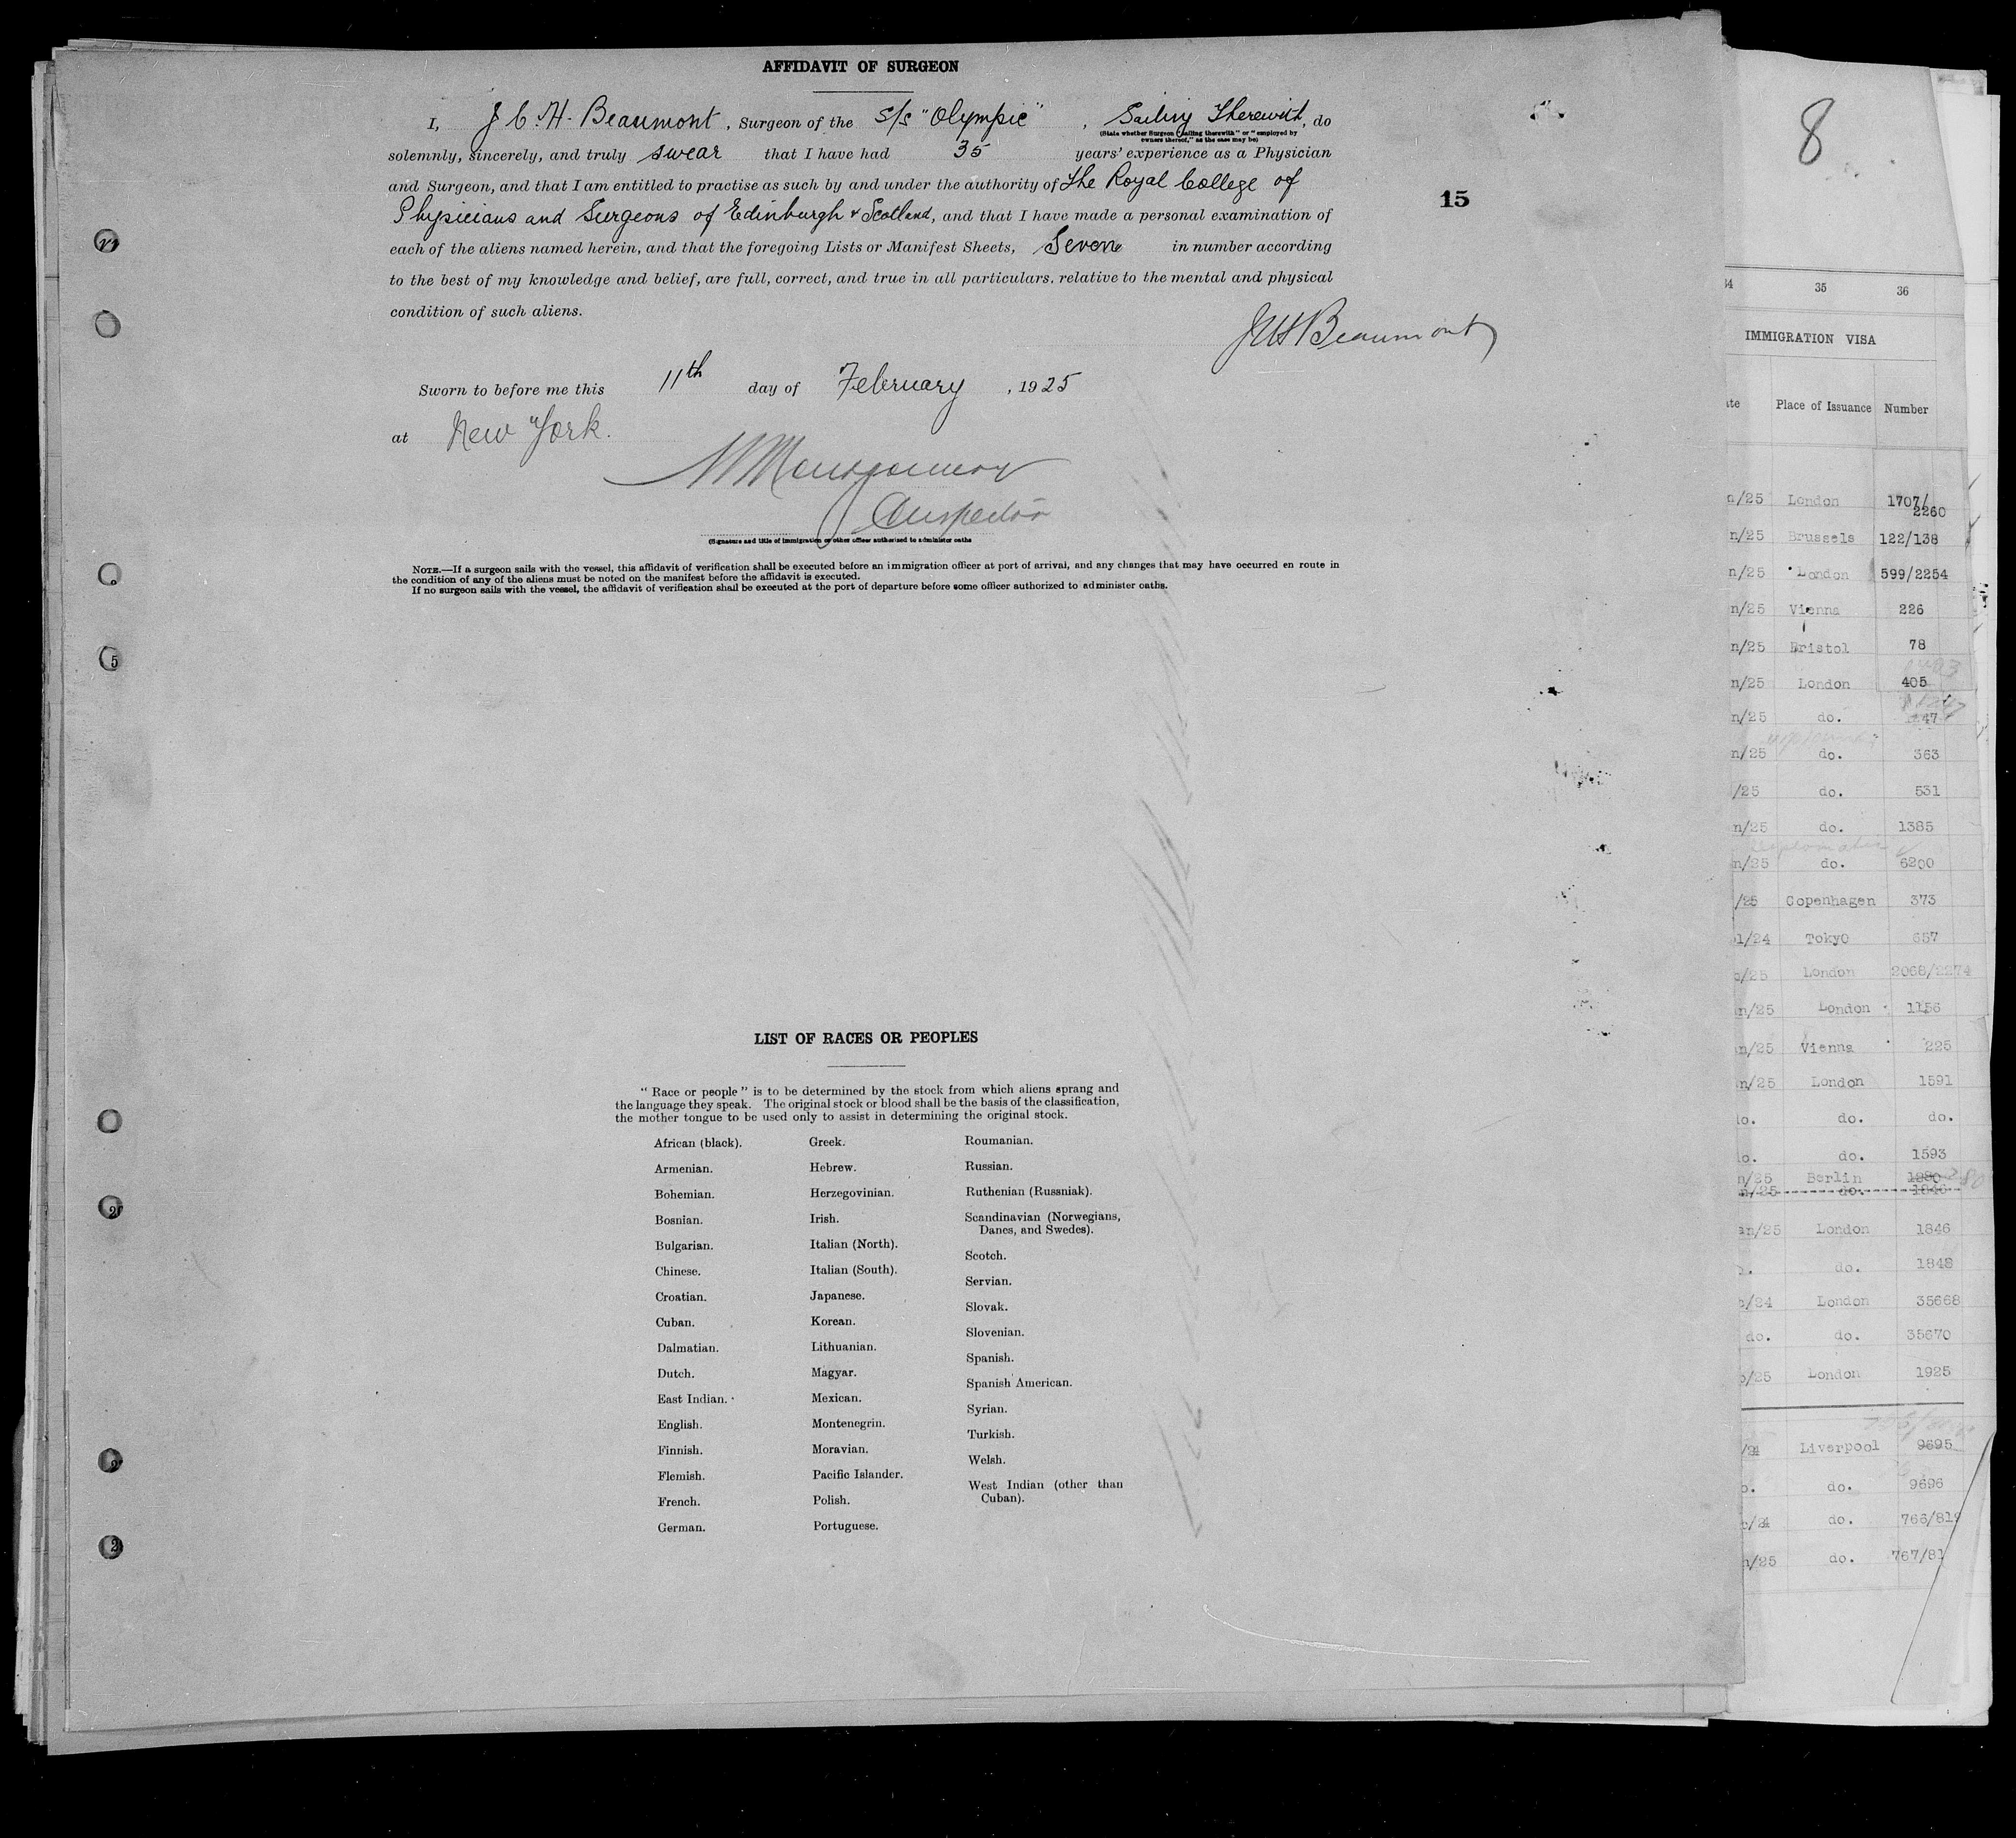 AFFIDAVIT OF SURGEON
I, J C. H. Beaumont, Surgeon of the S/S "Olympic", Sailing Therewith, do
(State whether Surgeon "sailing therewith" or "employed by
owners thereof," as the case may be)
solemnly, sincerely, and truly swear that I have had 35 years' experience as a Physician
and Surgeon, and that I am entitled to practise as such by and under the authority of The Royal College of
Physicians and Surgeons of Edinburgh & Scotland, and that I have made a personal examination of
each of the aliens named herein, and that the foregoing Lists or Manifest Sheets, Seven in number according
to the best of my knowledge and belief, are full, correct, and true in all particulars. relative to the mental and physical
condition of such aliens.
JCHBeaumont
Sworn to before me this 11th day of February, 1925
at New York.
Montgomery
Inspector
(Signature and title of immigration or other officer authorised to administer oaths
NOTE.—If a surgeon sails with the vessel, this affidavit of verification shall be executed before an immigration officer at port of arrival, and any changes that may have occurred en route in
the condition of any of the aliens must be noted on the manifest before the affidavit is executed.
If no surgeon sails with the vessel, the affidavit of verification shall be executed at the port of departure before some officer authorized to administer oaths.
15
LIST OF RACES OR PEOPLES
"Race or people" is to be determined by the stock from which aliens sprang and
the language they speak. The original stock or blood shall be the basis of the classification,
the mother tongue to be used only to assist in determining the original stock.
African (black).
Armenian.
Bohemian.
Bosnian.
Bulgarian.
Chinese.
Croatian.
Cuban.
Dalmatian.
Dutch.
East Indian.
English.
Finnish.
Flemish.
French.
German.
Greek.
Hebrew.
Herzegovinian.
Irish.
Italian (North).
Italian (South).
Japanese.
Korean.
Lithuanian.
Magyar.
Mexican.
Montenegrin.
Moravian.
Pacific Islander.
Polish.
Portuguese.
Roumanian.
Russian.
Ruthenian (Russniak).
Scandinavian (Norwegians,
Danes, and Swedes).
Scotch.
Servian.
Slovak.
Slovenian.
Spanish.
Spanish American.
Syrian.
Turkish.
Welsh.
West Indian (other than
Cuban).
8
35 36
IMMIGRATION VISA
Place of Issuance Number
n/25 London 1707/2260
n/25 Brussels 122/138
n/25 London 599/2254
n/25 Vienna 226
n/25 Bristol 78
n/25 London 405
n/25 do. 47
n/25 do. 363
/25 do. 531
n/25 do. 1385
n/25 do. 6200
/25 Copenhagen 373
1/24 Tokyo 657
/25 London 2068/2274
n/25 London 1156
n/25 Vienna 225
n/25 London 1591
o. do. do.
o. do. 1593
n/25 Berlin 1280
n/25 do. 1846
an/25 London 1846
do. 1848
/24 London 35668
do. do. 35670
/25 London 1925
/24 Liverpool 9695
do. 9696
/24 do. 766/819
n/25 do. 767/81